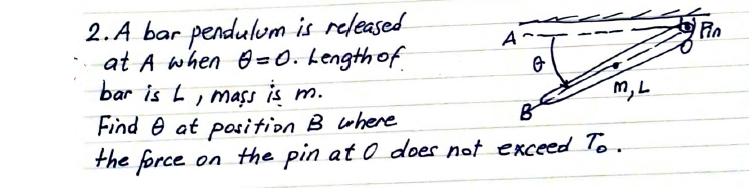 2. A bar pendulum is released
at A when θ=0. Length of
bar is L, mass is m.
Find θ at position B where
the force on the pin at O does not exceed T₀.
A
Pin
θ
O
m, L
B